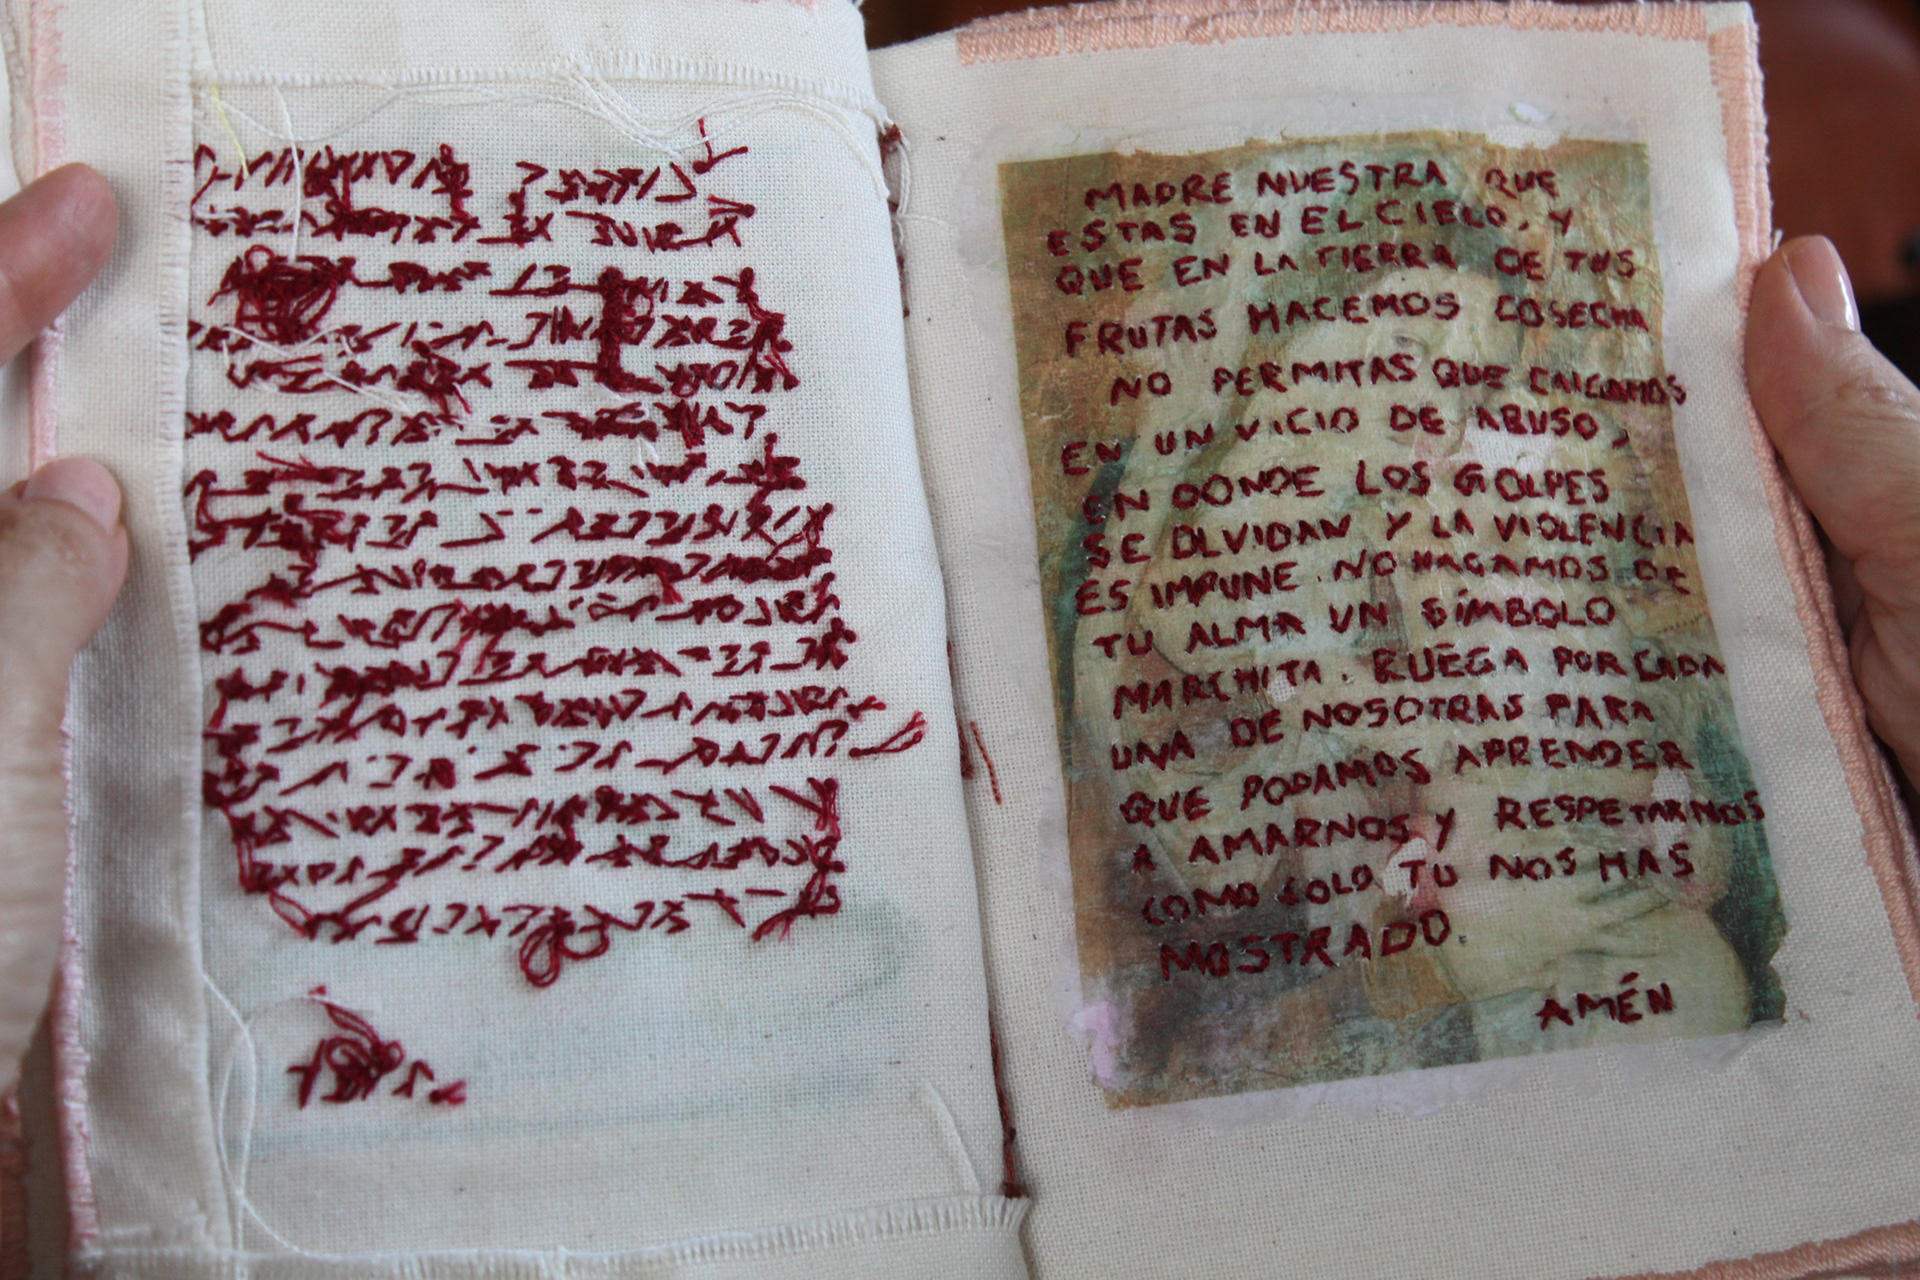 MADRE NUESTRA QUE
ESTAS EN EL CIELO, Y
QUE EN LA TIERRA DE TUS
FRUTAS HACEMOS COSECHA
NO PERMITAS QUE CAIGAMOS
EN UN VICIO DE ABUSO,
EN DONDE LOS GOLPES
SE OLVIDAN Y LA VIOLENCIA
ES IMPUNE. NO HAGAMOS DE
TU ALMA UN SÍMBOLO
MARCHITA. RUEGA POR CADA
UNA DE NOSOTRAS PARA
QUE PODAMOS APRENDER
A AMARNOS Y RESPETARNOS
COMO SOLO TU NOS HAS
MOSTRADO.
AMÉN